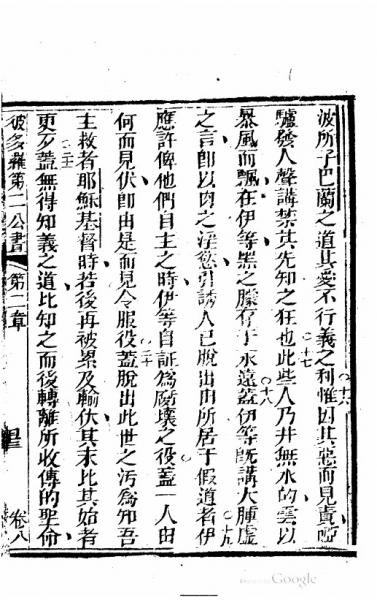 波所子巴蘭之道其愛不行義之利惟因其惡而見責啞
驢發人聲講禁其先知之狂也此些人乃井無水的雲以
暴風而飄在伊等黑之朦存于永遠蓋伊等旣講大腫虛
之言卽以肉之淫慾引誘人已脫出由所居于假道者伊
應許俾他們自主之時伊等自証爲腐壞之役蓋一人由
何而見伏卽由是而見令服役蓋脫出此世之污爲知吾
主救者耶穌基督時若後再被累及輸伏其末比其始者
更歹蓋無得知義之道比知之而後轉離所收傳的聖僉
彼多羅第二公書 第二章 卷八
十六
十七
十八
十九
二十
Google